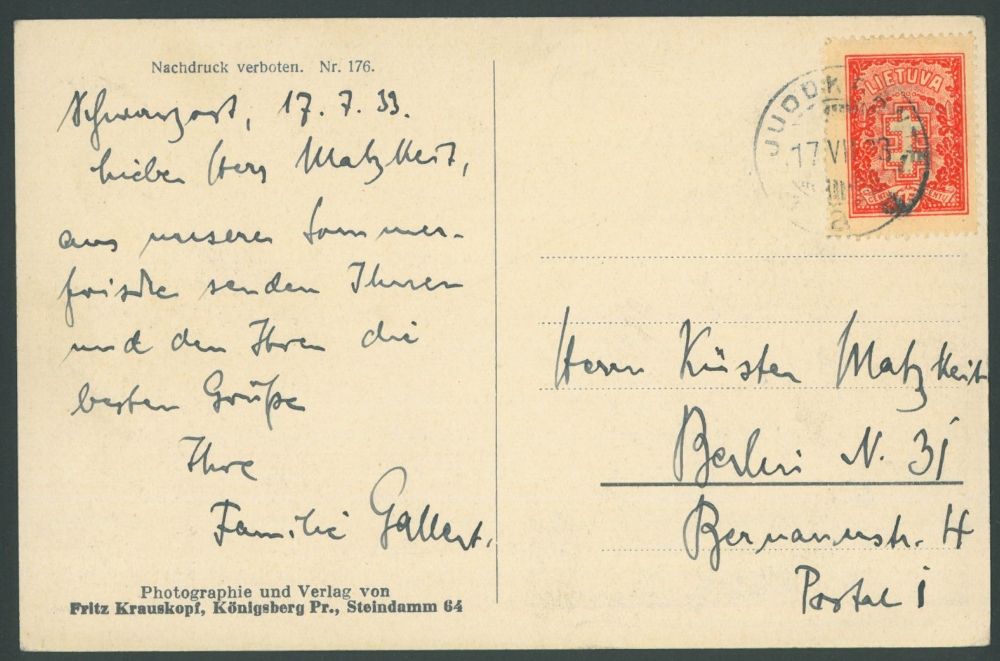 Nachdruck verboten. Nr. 176.
Schwarzort, 17. 7. 33.
Lieber Herr Matzkeit,
aus unserer Sommer-
frische senden Ihnen
und den Ihren die
besten Grüße
Ihre
Familie Gallert.
Photographie und Verlag von
Fritz Krauskopf, Königsberg Pr., Steindamm 64
LIETUVA
JUODK
17 VII 33
2
Herrn Küster Matzkeit
Berlin N. 31
4
Portal 1